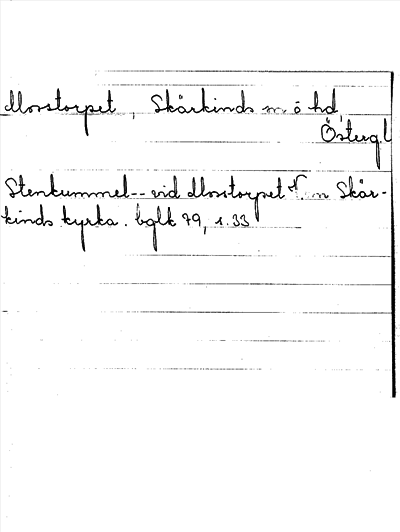 Morstorpet, Skärkinds sn o hd,
Östergl
Stenkummel -- vid Morstorpet N. om Skär-
kinds kyrka. bglk 79, s. 33